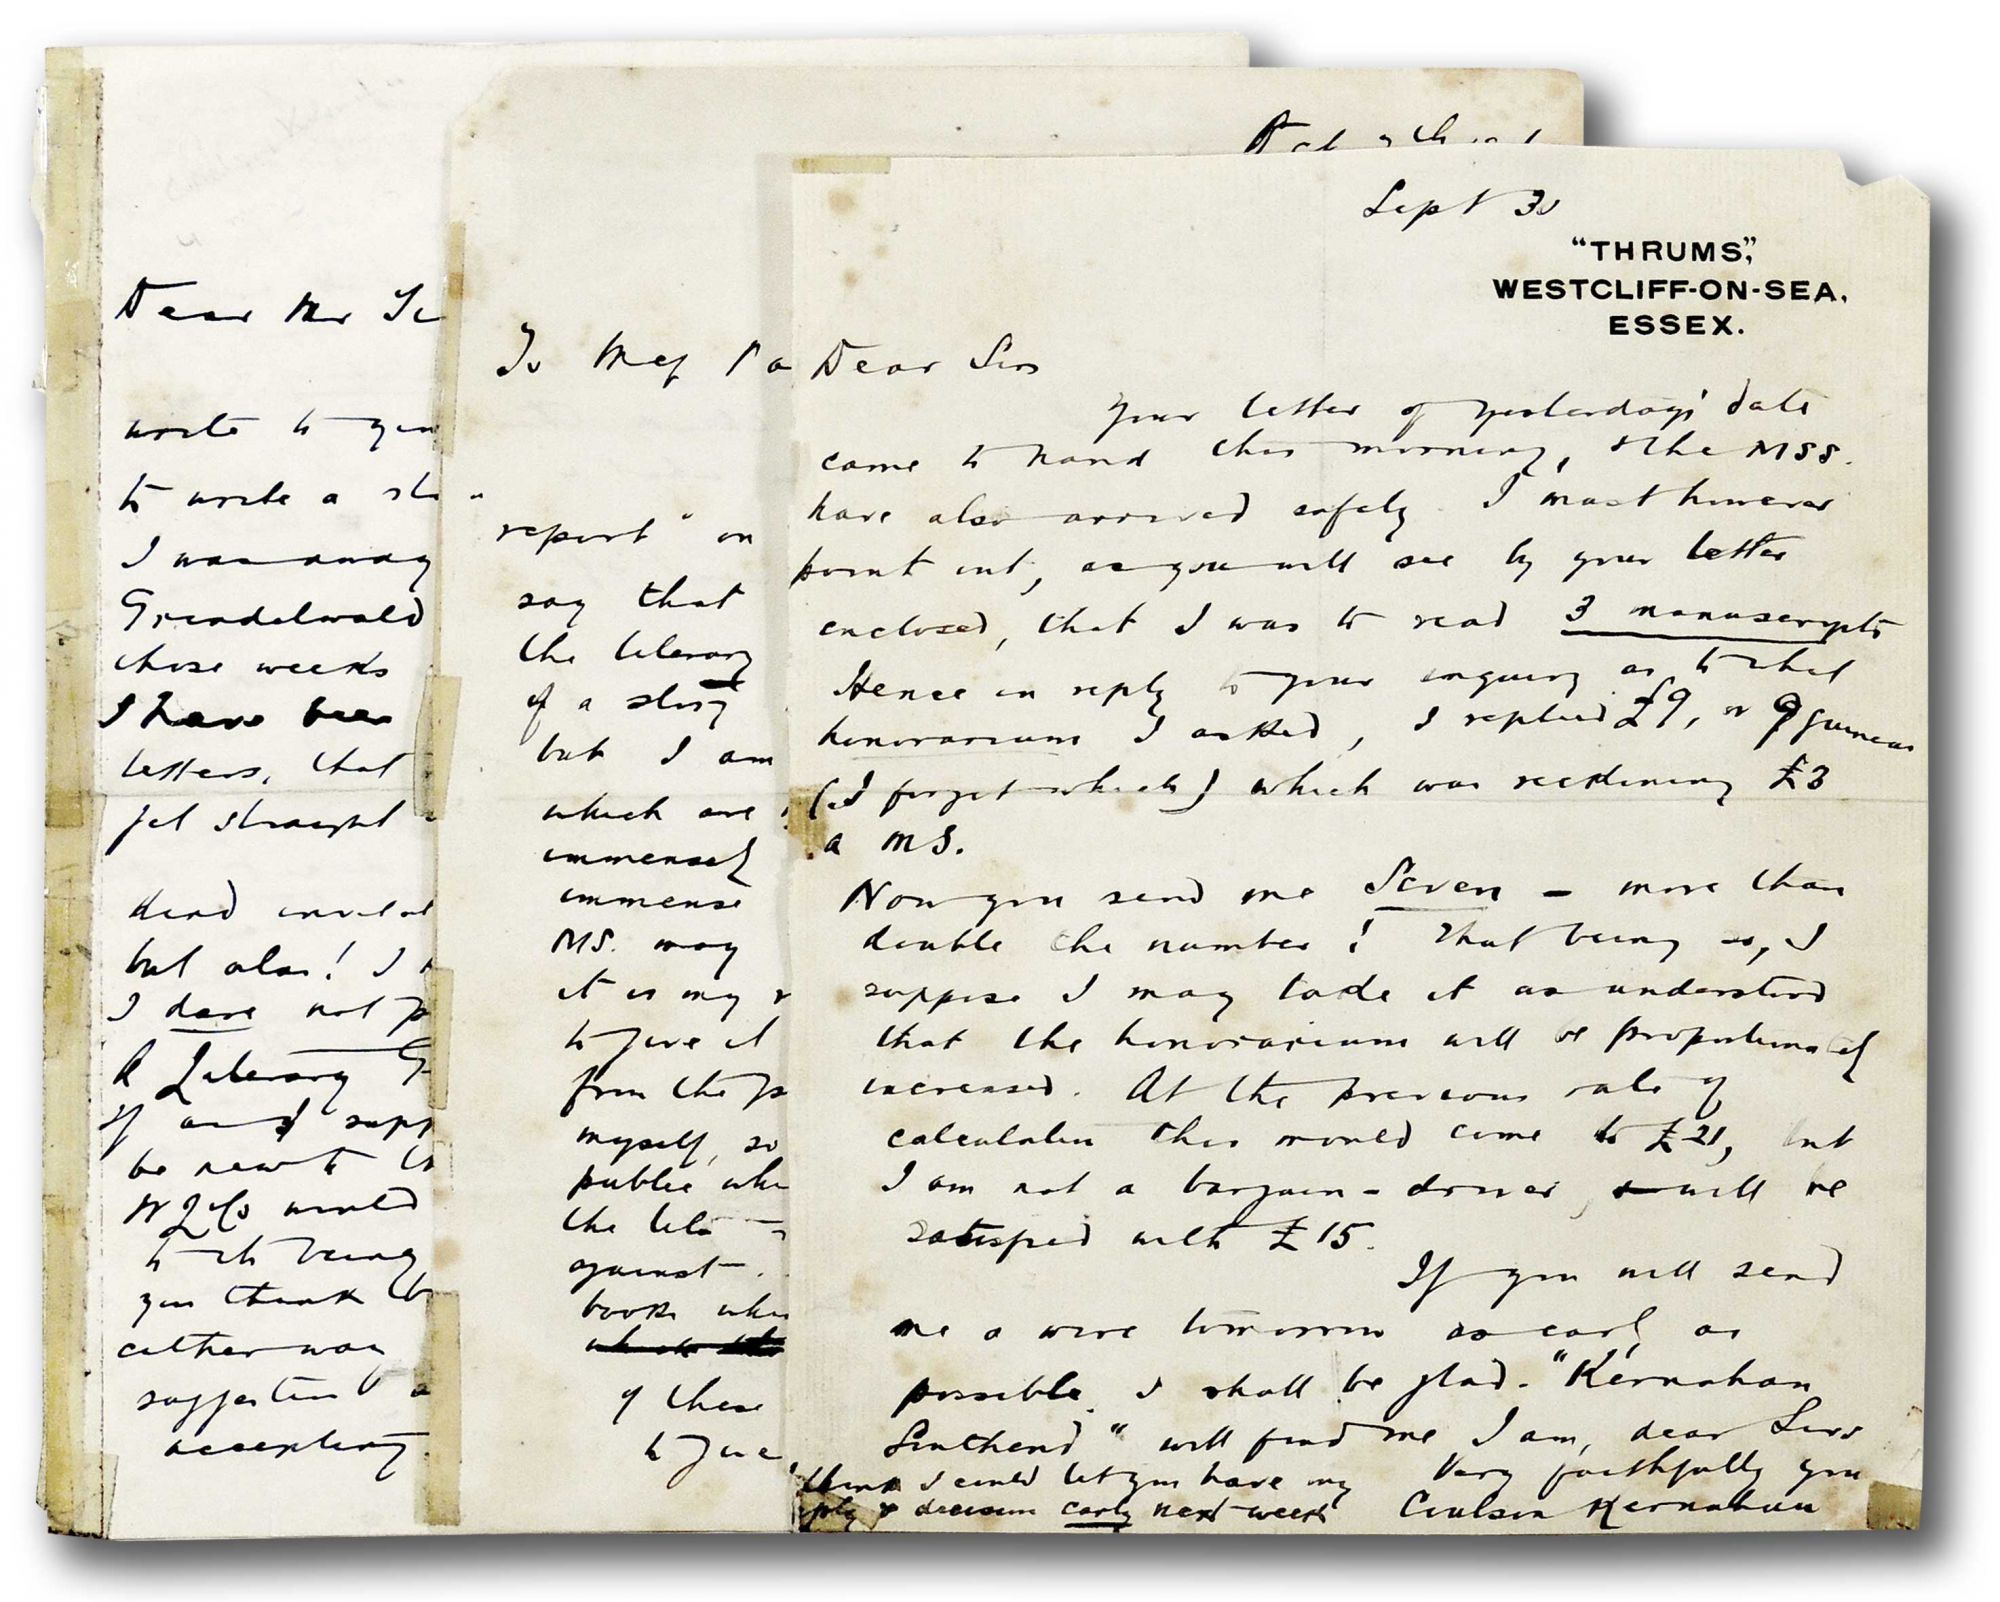 Dear Mr
write to you
to write a
I was away
Grindelwald
those weeks
I have been
letters, that
get straight
kind
but alas! I
I dare not
A Literary
If
be new to
W L & Co would
to its being
you think
either way
suggestion
accepting
To Mess
"
report" on
say that
the literary
of a story
but I am
which are
immensely
immense
MS. may
it is my
to give it
from the
myself, so
public
the
against.
books
of these
to give
Sept 30
"THRUMS,"
WESTCLIFF-ON-SEA,
ESSEX.
Dear Sirs
Your letter of yesterday's date
came to hand this morning, & the MSS.
have also arrived safely. I must however
point out, as you will see by your letter
enclosed, that I was to read 3 manuscripts
Hence in reply to your inquiry as to what
honorarium I asked, I replied £9, or 9 guineas
(I forget which) which was reckoning £3
a MS.
Now you send me Seven - more than
double the number! That being so, I
suppose I may take it as understood
that the honorarium will be proportionately
increased. At the previous rate of
calculation this would come to £21, but
I am not a bargain-driver, & will be
satisfied with £15.
If you will send
me a wire tomorrow as early as
possible I shall be glad. "Kernahan
Southend" will find me I am, dear Sirs
Very faithfully you
Coulson Kernahan
think I could let you have my
& decision early next week